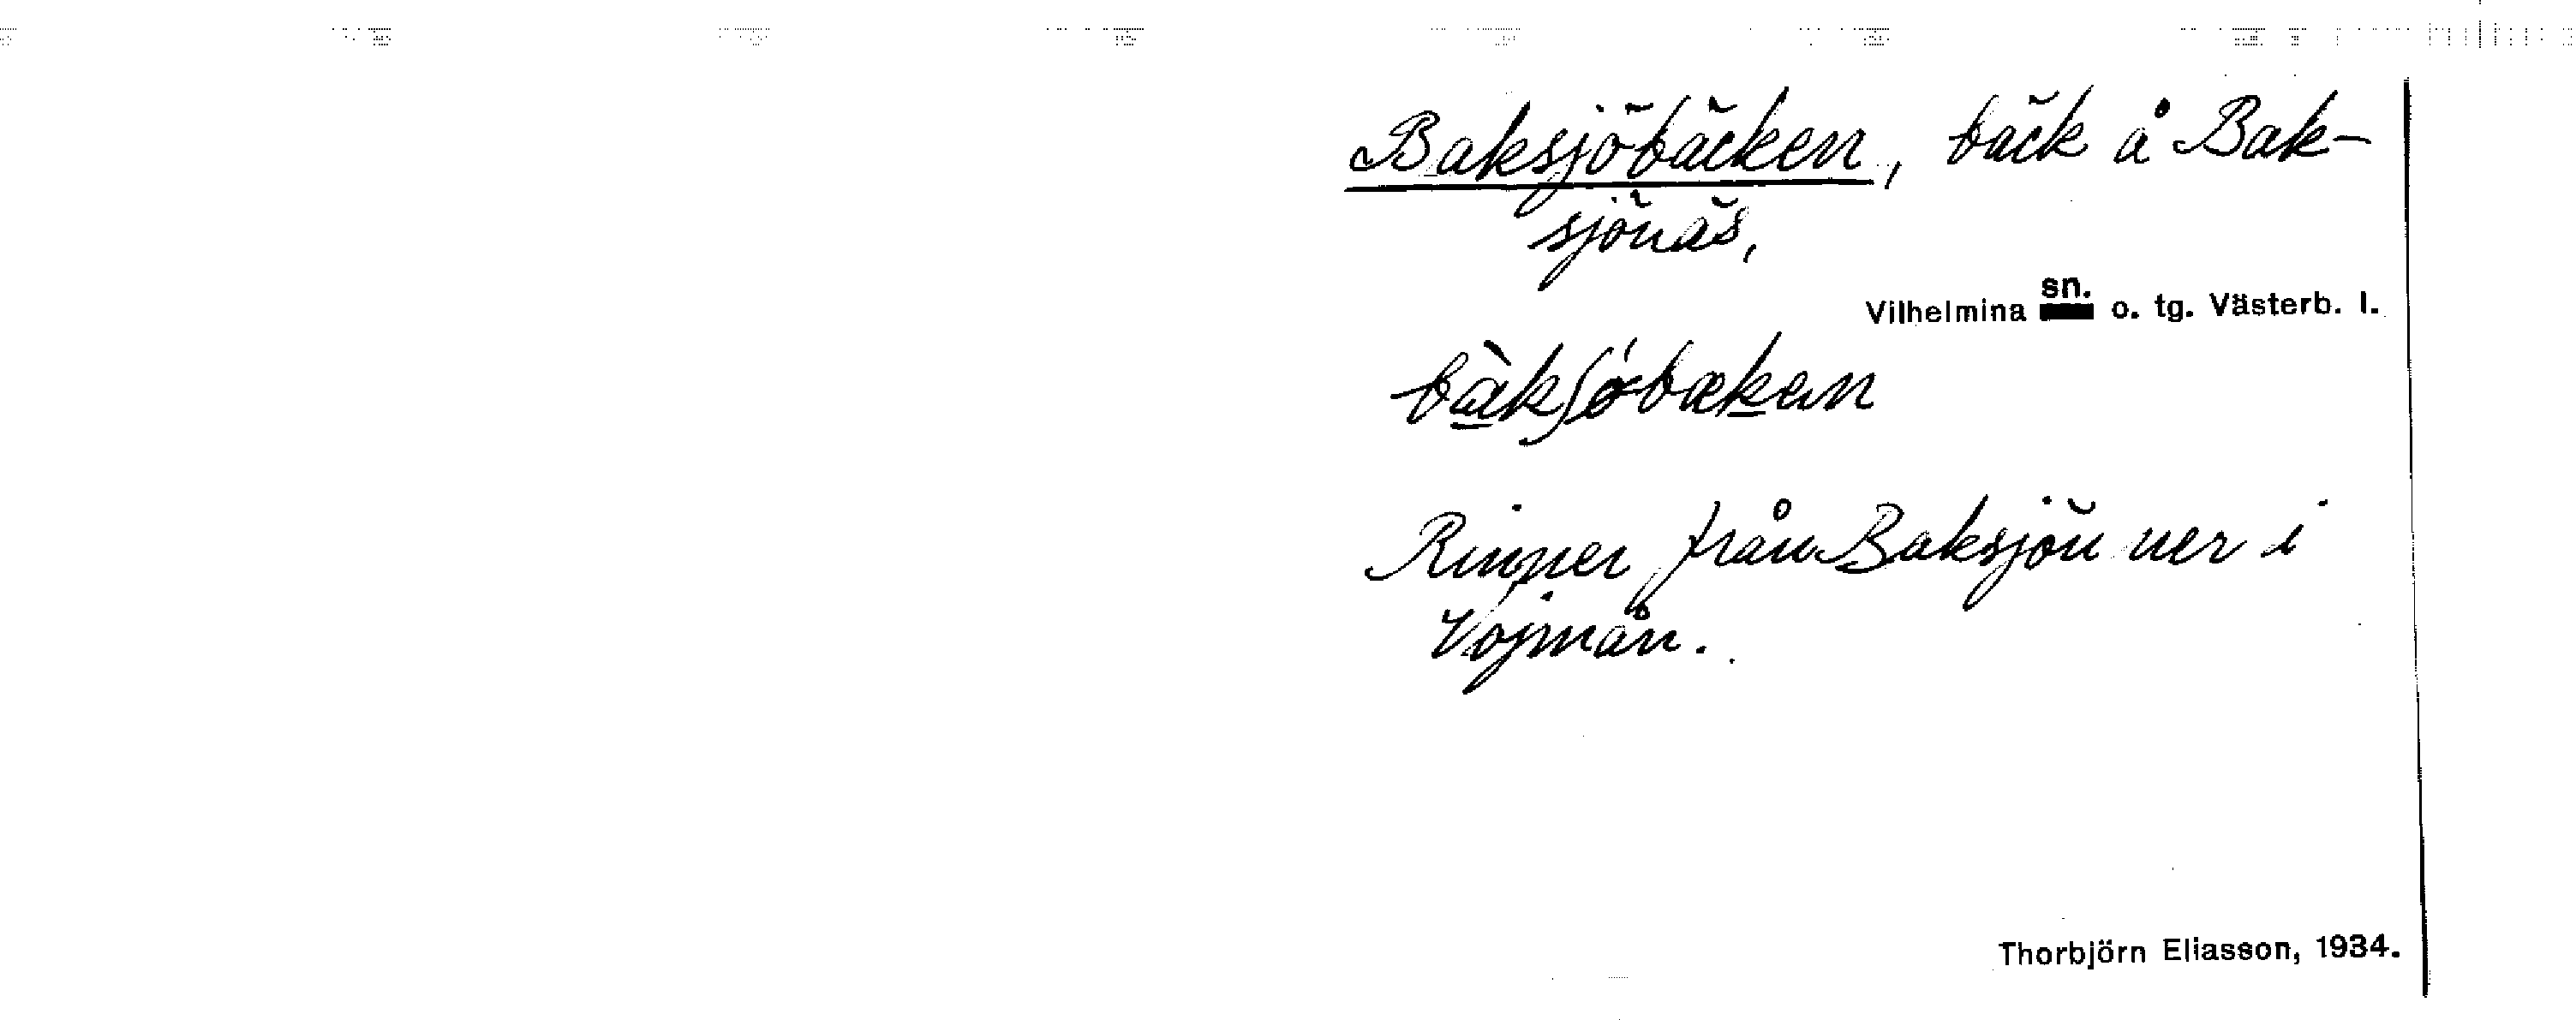 Baksjöbäcken, bäck å Bak-
sjönäs,
Vilhelmina sn. o. tg. Västerb. l.
bàkʃöbækən
Rinner från Baksjön ner i
Vojmån.
Thorbjörn Eliasson, 1934.